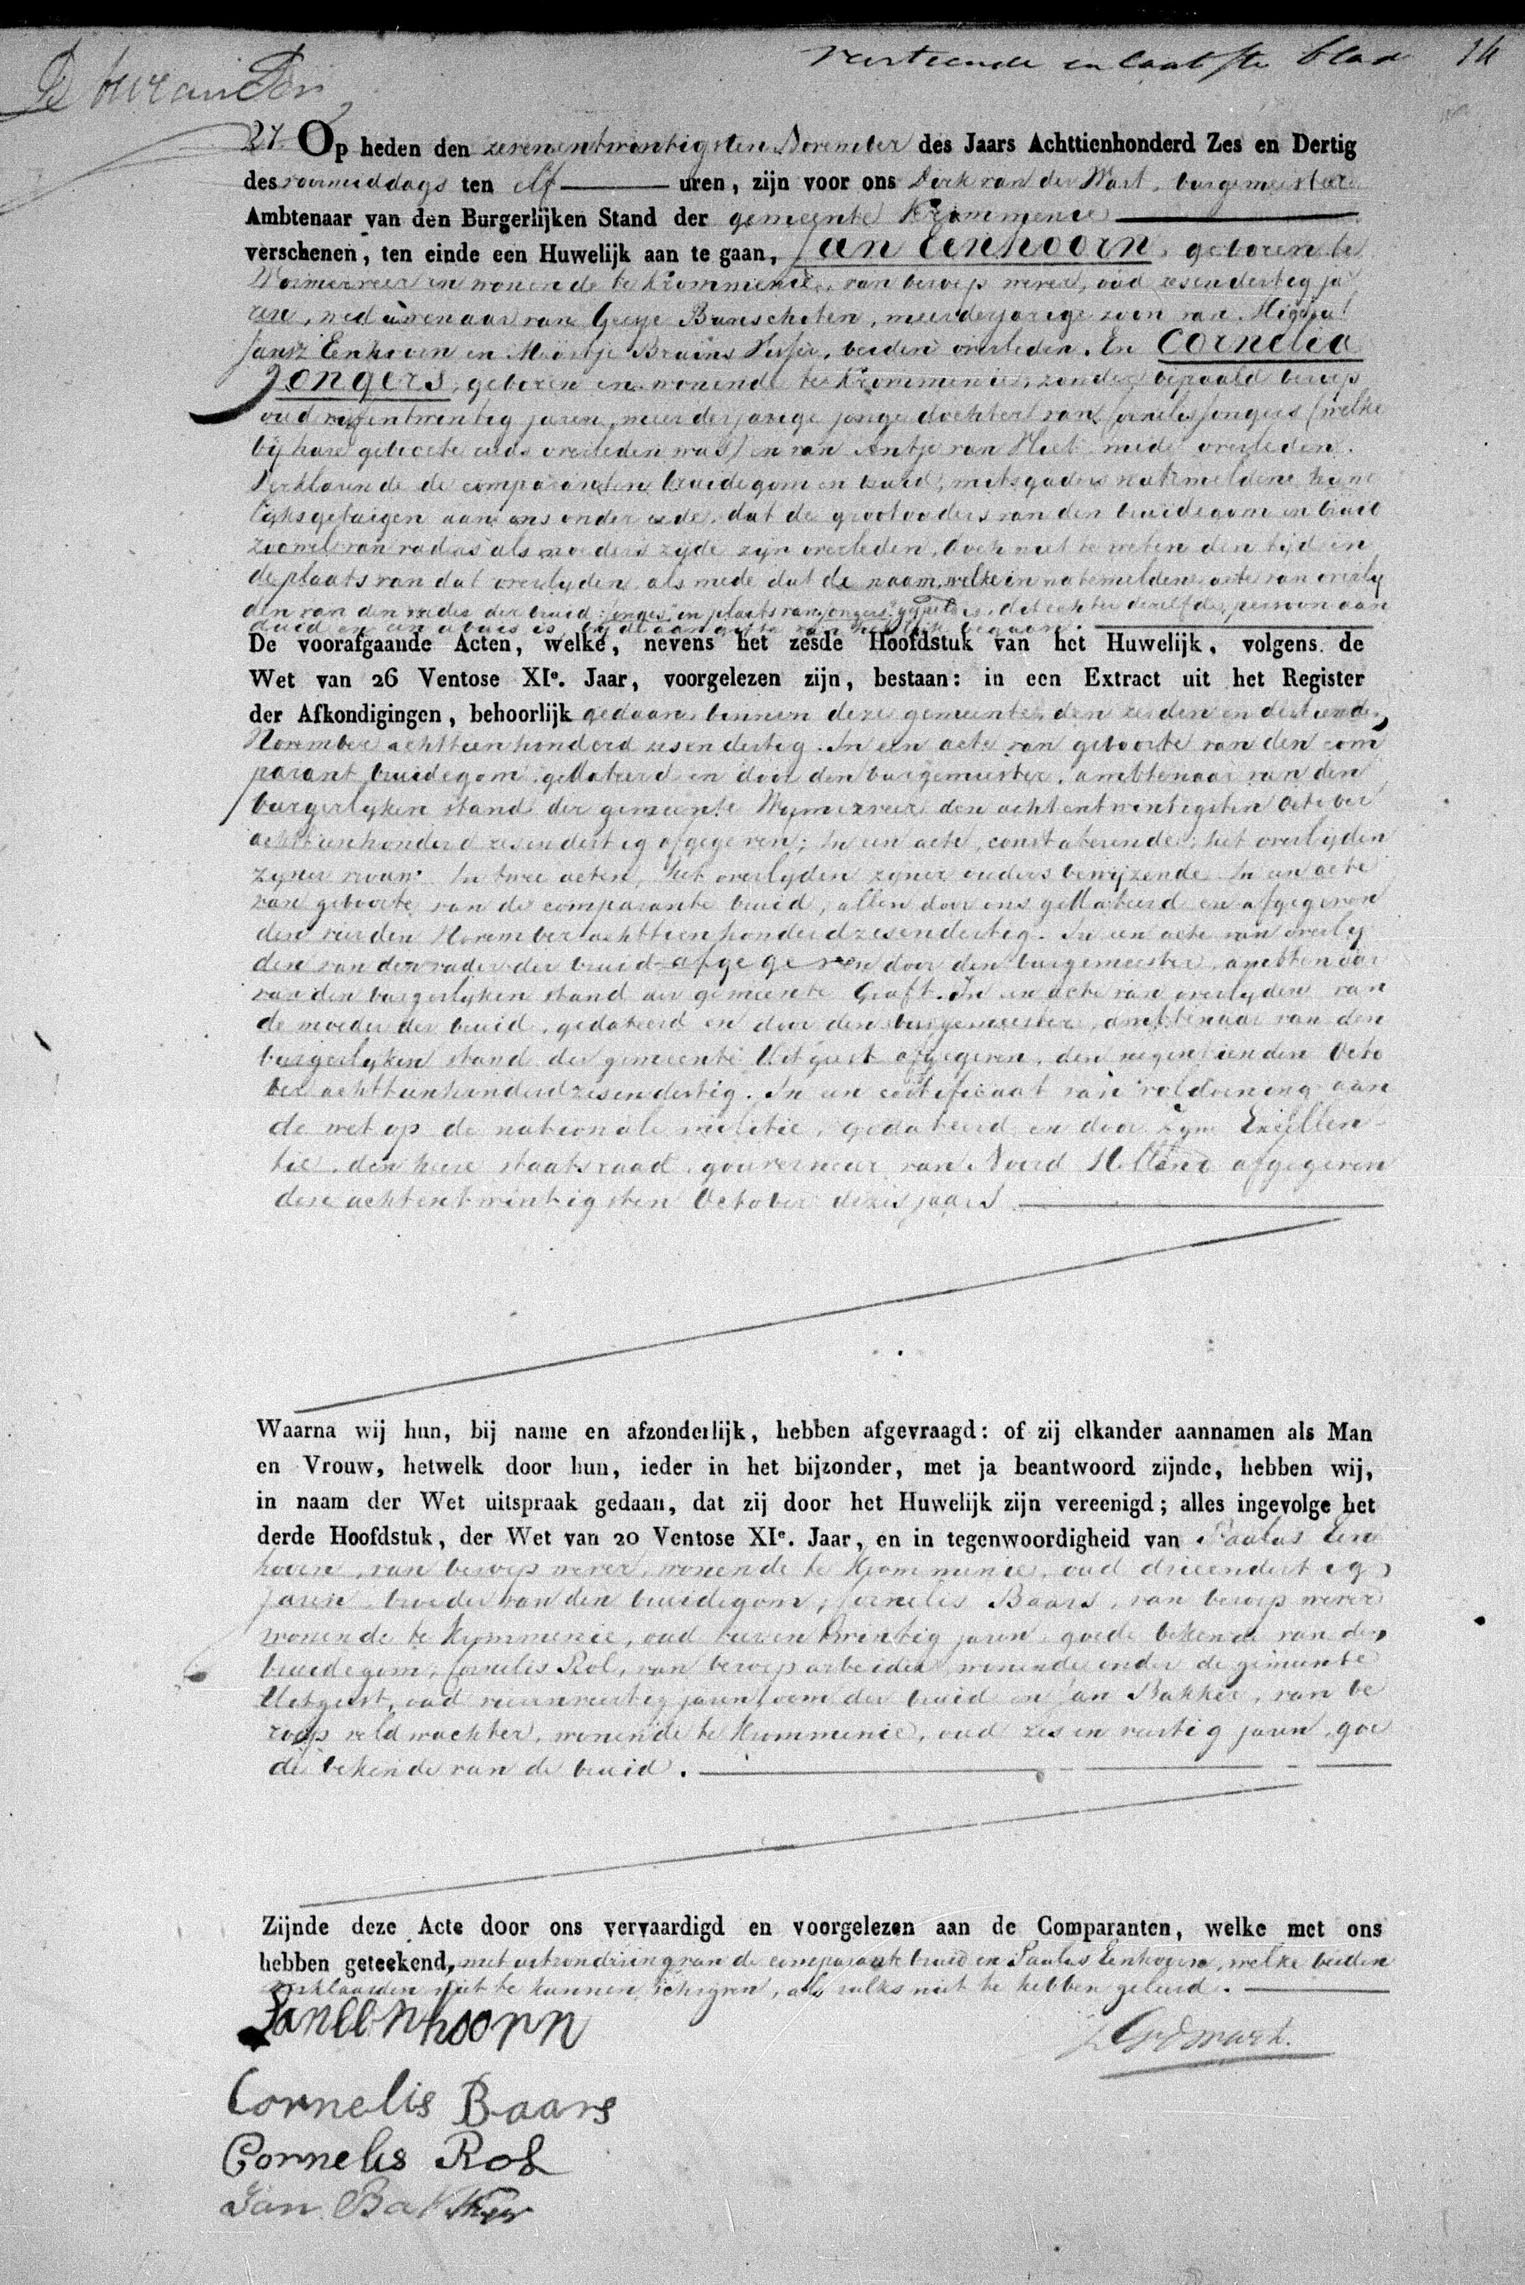 Veertiende en laatste blad 14
27. Op heden den zevenentwintigsten November des Jaars Achttienhonderd Zes en Dertig
des voormiddags ten elf uren, zijn voor ons Dirk van der Mart, burgemeester
Ambtenaar van den Burgerlijken Stand der gemeente Krommenie
verschenen, ten einde een Huwelijk aan te gaan, Jan Eenhoorn, geboren te
Wormerveer en wonende te Krommenie, van beroep wever, oud zesendertig ja
ren, weduwenaar van Geesje Bunschoten, meerderjarige zoon van
Jansz Eenhoorn en Maartje Bruins Visser, beiden overleden. En Cornelia
Jongers, geboren en wonende te Krommenie, zonder bepaald beroep
oud vijfentwintig jaren, meerderjarige jonge dochter van Cornelis Jongers (welke
bij hare geboorte reeds overleden was) en van Antje van Vliet mede overleden.
Verklarende de comparanten bruidegom en bruid, mitsgaders natemeldene huwe
lijksgetuigen aan ons onder eede, dat de grootvaders van den bruidegom en bruid
zoowel van vaders als moeders zijde zijn overleden, doch niet te weten den tijd en
de plaats van dat overlijden, als mede dat de naam, welke in natemeldene acte van overlij
den van den vader der bruid: jonges in plaats van jongers gespeld is, dat echter dezelfde persoon aan
duid en een abuis is, bij de aangifte van het lijk begaan.
De voorafgaande Acten, welke, nevens het zesde Hoofdstuk van het Huwelijk, volgens de
Wet van 26 Ventose XIe. Jaar, voorgelezen zijn, bestaan: in een Extract uit het Register
der Afkondigingen, behoorlijk gedaan binnen deze gemeente, den zesden en dertienden
November achttienhonderd zesendertig. In een acte van geboorte van den com
parant bruidegom, gedateerd en door den burgemeester, ambtenaar van den
burgerlijken stand der gemeente Wormerveer den achtentwintigsten October
achttienhonderd zesendertig afgegeven; In een acte, constaterende, het overlijden
zijner vrouw. In twee acten, het overlijden zijner ouders bewijzende. In een acte
van geboorte van de comparante bruid, allen door ons gedateerd en afgegeven
den vierden November achttienhonderdzesendertig. In een acte van overlij
den van den vader der bruid afgegeven door den burgemeester, ambtenaar
van den burgerlijken stand der gemeente Graft. In een acte van overlijden van
de moeder der bruid, gedateerd en door den burgemeester, ambtenaar van den
burgerlijken stand der gemeente Uitgeest afgegeven, den negentienden Octo
ber achttienhonderdzesendertig. In een certificaat van voldoening aan
de wet op de nationale militie, gedateerd en door zijne Excellen
tie, den heere staatsraad, gouverneur van Noord Holland afgegeven
den achtentwintigsten October dezes jaars
Waarna wij hun, bij name en afzonderlijk, hebben afgevraagd: of zij elkander aannamen als Man
en Vrouw, hetwelk door hun, ieder in het bijzonder, met ja beantwoord zijnde, hebben wij,
in naam der Wet uitspraak gedaan, dat zij door het Huwelijk zijn vereenigd; alles ingevolge het
derde Hoofdstuk, der Wet van 20 Ventose XIe. Jaar, en in tegenwoordigheid van Paulus Een
hoorn, van beroep wever, wonende te Krommenie, oud drieendertig
jaren, broeder van den bruidegom; Cornelis Baars, van beroep wever
wonende te Krommenie, oud jaren, goede bekende van den
bruidegom; Cornelis Rol, van beroep arbeider, wonende onder de gemeente
Uitgeest, oud jaren, oom der bruid en Jan Bakker, van be
roep veldwachter, wonende te Krommenie, oud zes en veertig jaren, goe
de bekende van de bruid.
Zijnde deze Acte door ons vervaardigd en voorgelezen aan de Comparanten, welke met ons
hebben geteekend, met uitzondering van de comparante bruid en Paulus Eenhoorn, welke beiden
verklaarden niet te kunnen schrijven, als zulks niet te hebben geleerd.
Jan eenhoorn
Cornelis Baars
Cornelis Rol
Jan Bakker